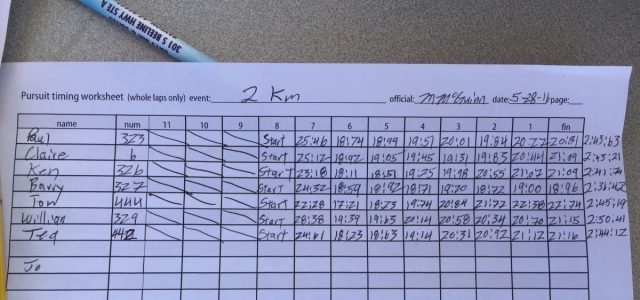 301 S BEELINE HWY STE A
Pursuit timing worksheet (whole laps only) event: 2 Km official: M McGuinn date: 5-28-16 page:
name num 11 10 9 8 7 6 5 4 3 2 1 fin
Paul 323 Start 25:46 18:74 18:99 19:51 20:01 19:84 20:27 20:81 2:43:63
Claire 6 Start 25:12 18:92 19:05 19:45 19:31 19:83 20:44 21:09 2:43:21
Ken 326 Start 23:18 18:11 18:51 19:25 19:98 20:55 21:07 21:09 2:41:74
Barry 327 Start 24:32 18:59 18:92 18:71 19:20 18:72 19:00 18:96
Tom 444 Start 22:28 17:21 18:23 19:74 20:84 21:72 22:38 22:74 2:45:19
William 329 Start 28:38 19:39 19:63 20:14 20:58 20:34 20:70 21:15 2:50:41
Ted Start 24:61 18:23 18:63 19:14 20:31 20:92 21:12 21:16 2:44:12
Jo